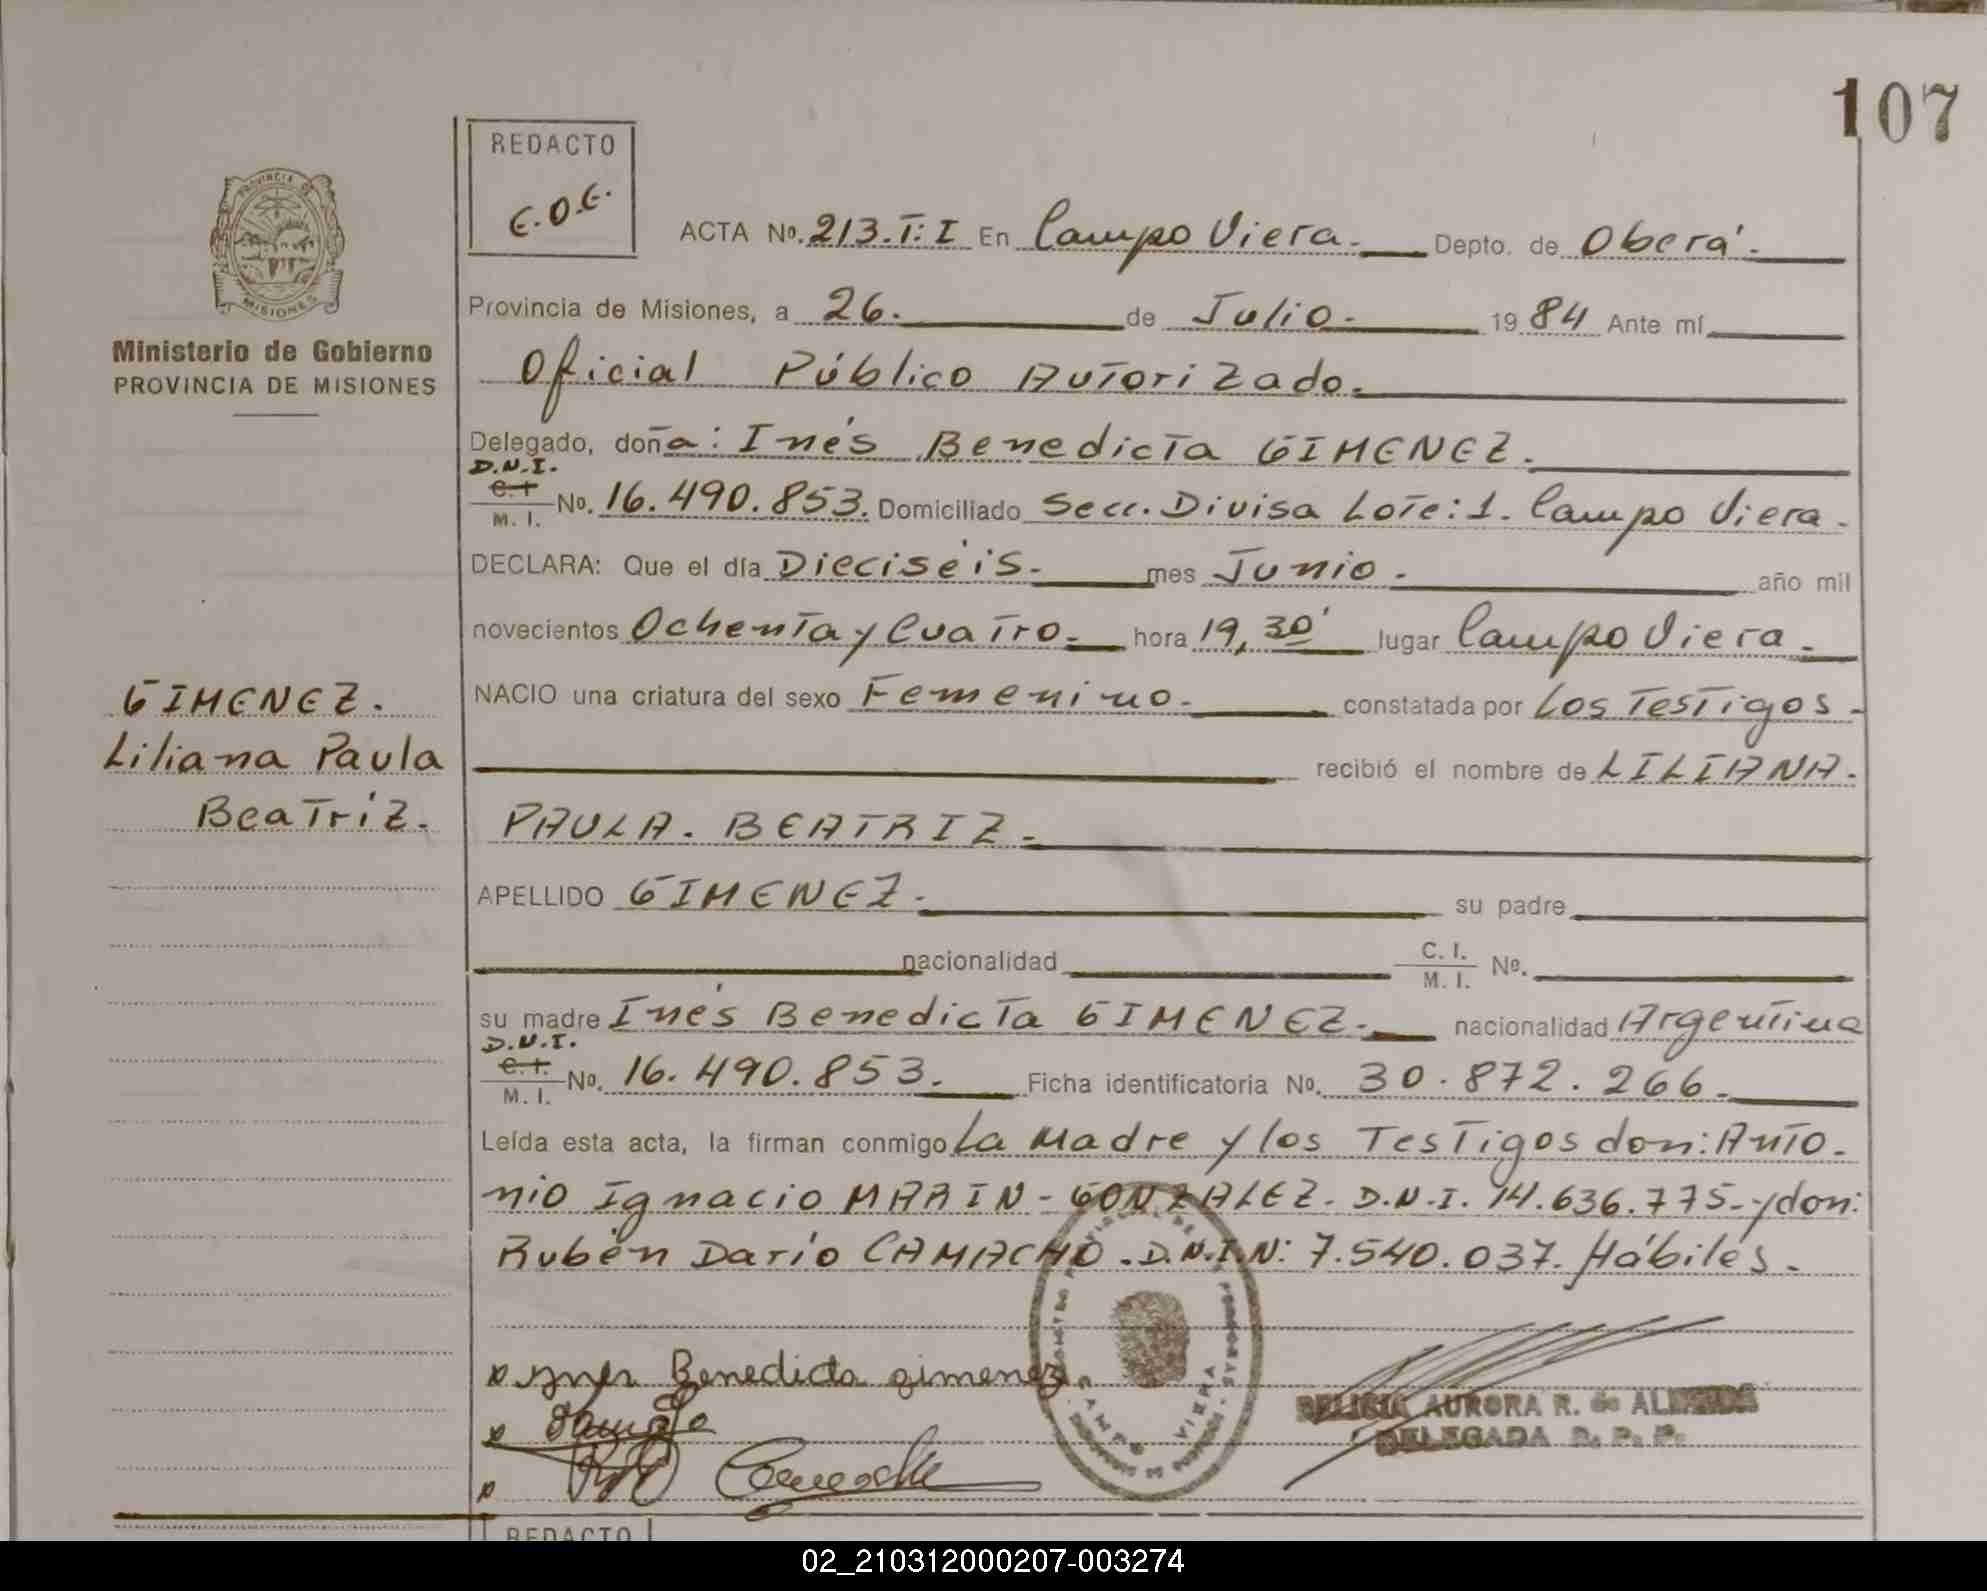 107
REDACTO
E.O.E.
PROVINCIA DE
MISIONES
Ministerio de Gobierno
PROVINCIA DE MISIONES
ACTA Nº. 213.T:I En Campo Viera. Depto. de Oberá.
Provincia de Misiones, a 26. de Julio. 1984 Ante mí
Oficial Público Autorizado.
Delegado, doña: Inés Benedicta GIMENEZ.
D.N.I.
C.I. M.I. Nº. 16.490.853. Domiciliado Secc. Divisa Lote:1. Campo Viera.
DECLARA: Que el día Dieciséis. mes Junio. año mil
novecientos Ochenta y Cuatro. hora 19,30' lugar Campo Viera.
NACIO una criatura del sexo Femenino. constatada por Los Testigos.
recibió el nombre de LILIANA.
PAULA. BEATRIZ.
GIMENEZ.
Liliana Paula
Beatríz.
APELLIDO GIMENEZ. su padre
nacionalidad C.I. M.I. Nº.
su madre Inés Benedicta GIMENEZ. nacionalidad Argentina
D.N.I.
C.I. M.I. Nº. 16.490.853. Ficha identificatoria Nº. 30.872.266.
Leída esta acta, la firman conmigo La Madre y los Testigos don: Anto-
nio Ignacio MARIN-GONZALEZ. D.N.I. 14.636.775.-y don:
Rubén Darío CAMACHO. D.N.I.N: 7.540.037. Hábiles.
Benedicta gimenez
VIERA
AURORA R. de
DELEGADA R. P. P.
REDACTO
02_210312000207-003274